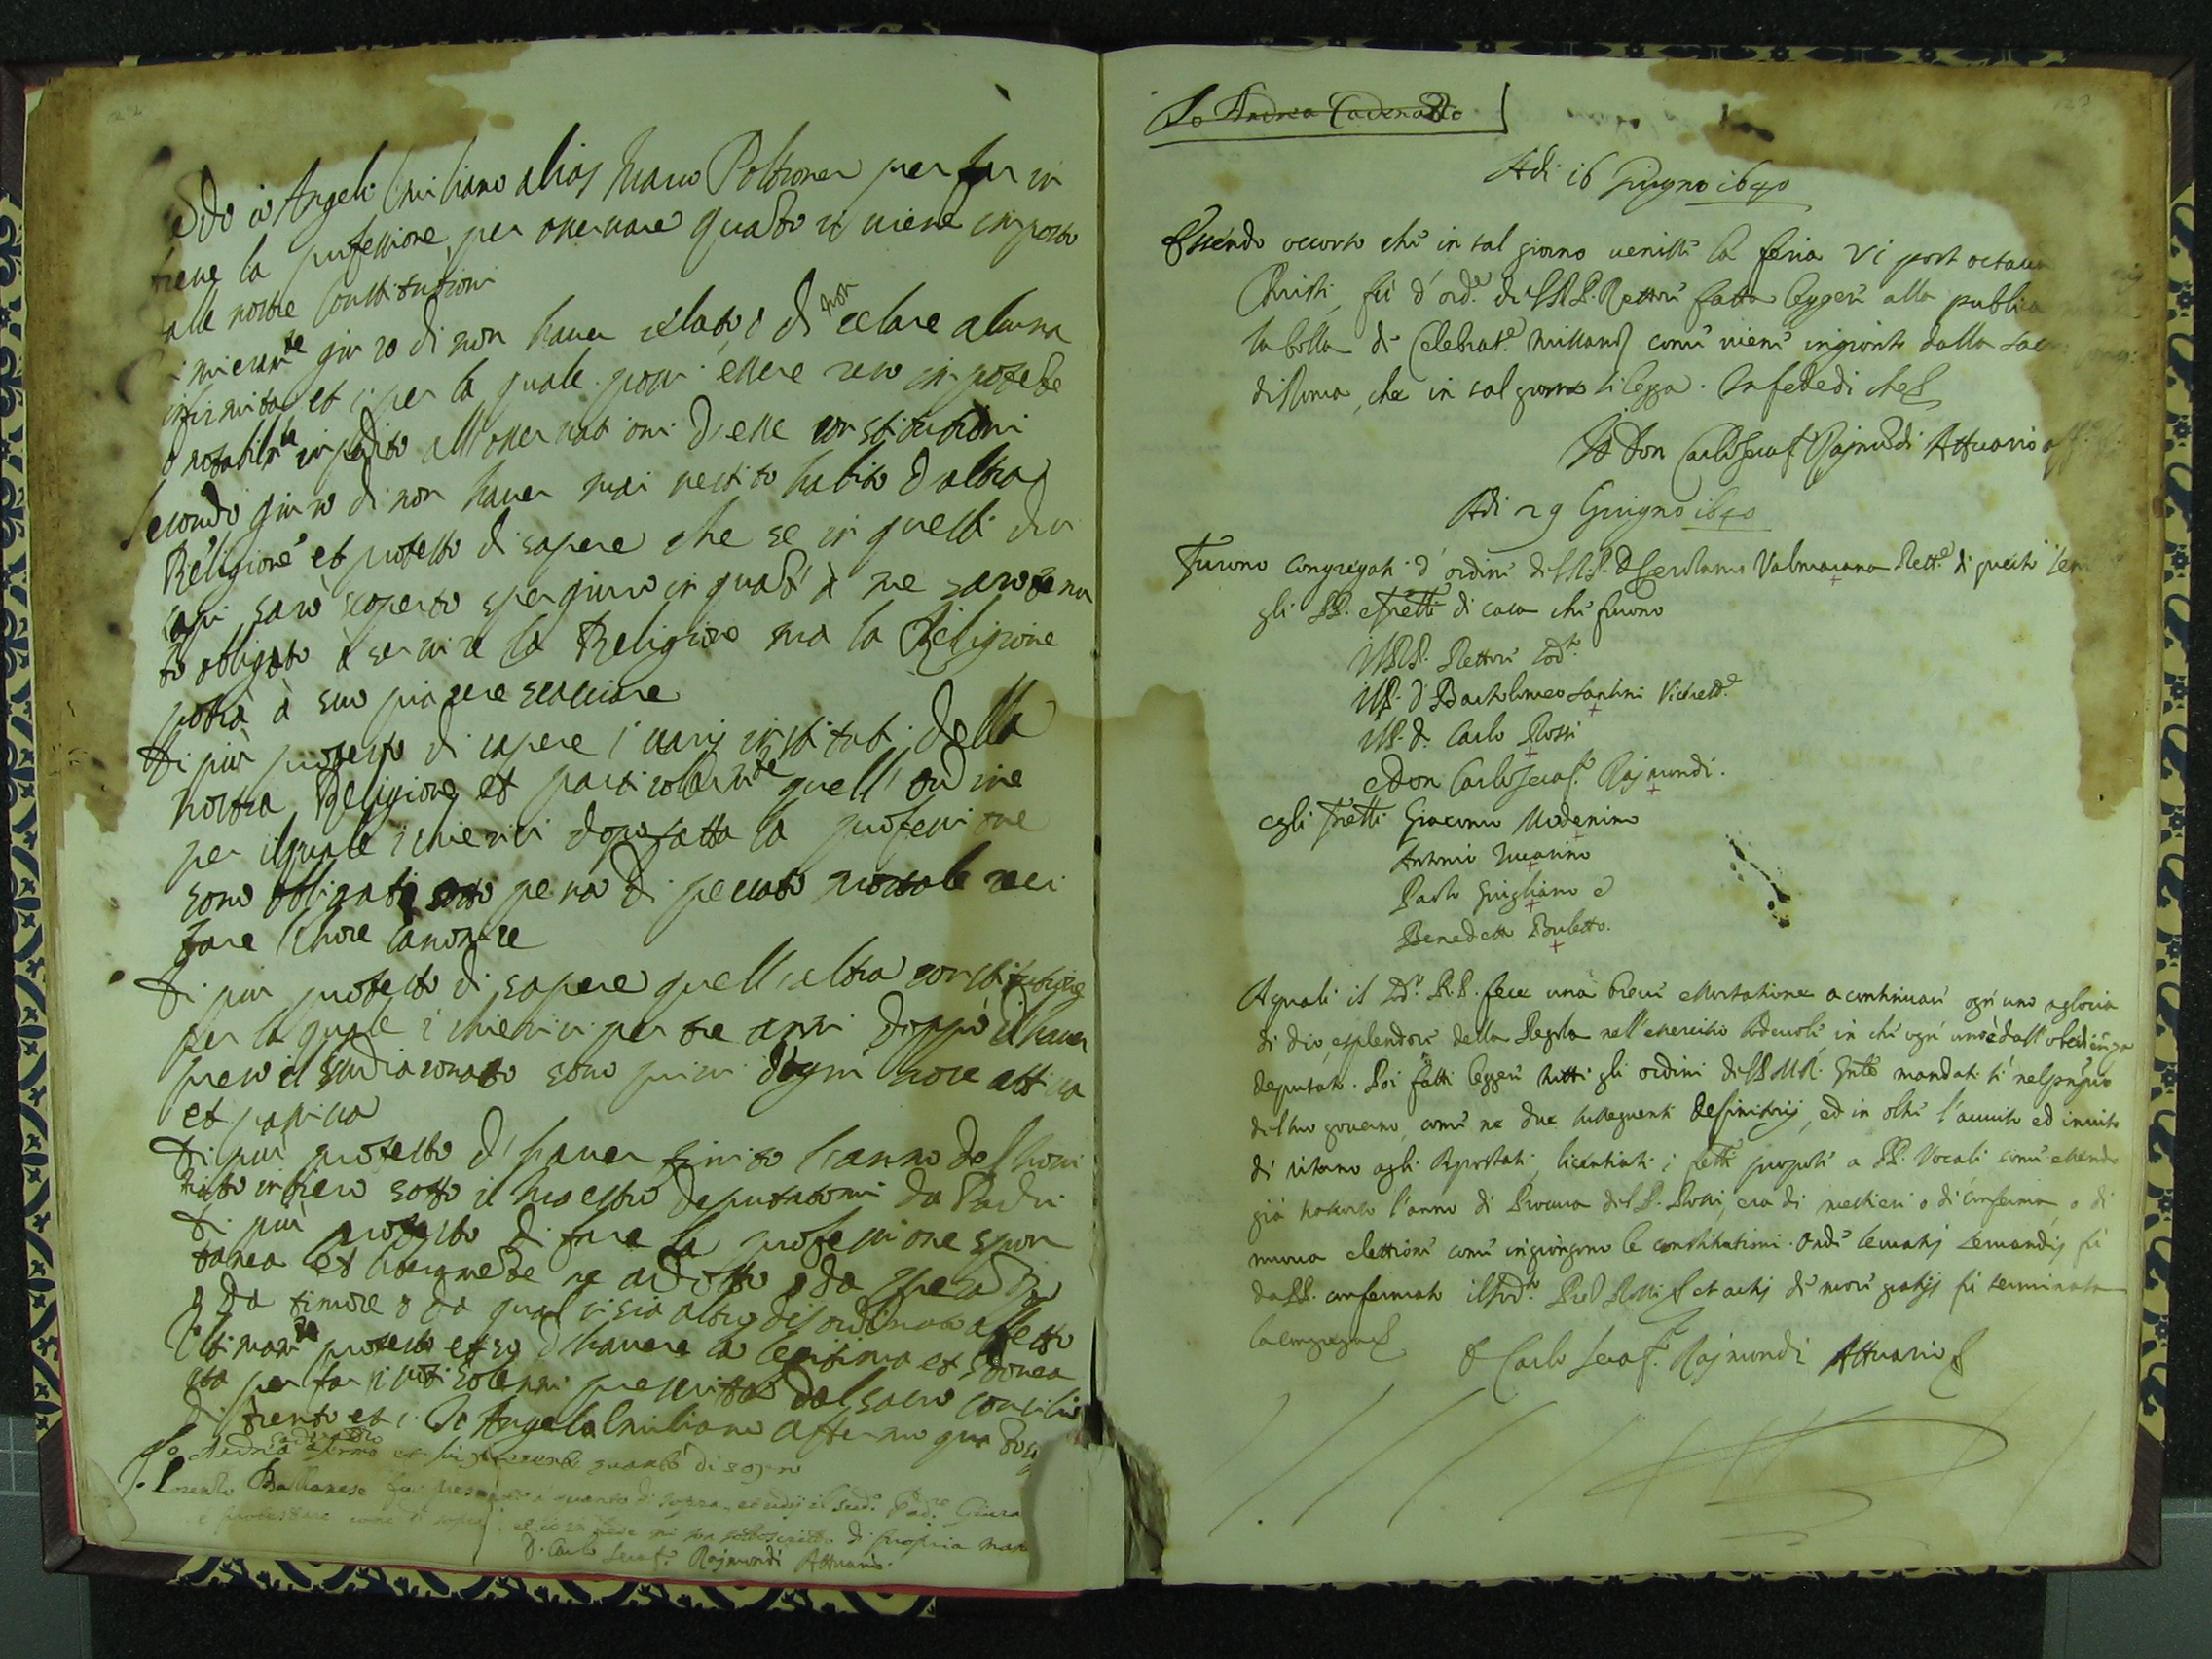 io Angelo Emiliano alias Marco Poltroner per far in
breve la professione per osservare quanto vi viene imposto
alle nostre Constitutioni
giuro di non haver celato, o di non celare alcuna
infirmita et c per la quale possi essere reso impotente
o notabilmte impedito all'osservationi d'esse constitutioni
Secondo giuro di non haver mai vestito habito d'altra
Religione et protesto di sapere che se in questi dui
capi sarò scoperto spergiuro in quanto à me sarò tenu
to obligato à servire la Religione ma la Religione
potrà à suo piacere scacciare
Di più protesto di sapere i varij instituti della
nostra Religione et particolarmte quell'ordine
per il quale i chierici dopo fatta la professione
sono obligati sotto pena di peccato mortale reci
tare l'hore canoniche
Di più protesto di sapere quell'altra constitutione
per la quale i chierici per tre anni doppò il haver
preso il sudiaconato sono privi d'ogni voce attiva
et passiva
Di più protesto d'haver finito l'anno del novi
tiato intiero sotto il Maestro deputatomi da Padri
Di più protesto di fare la professione spon
tanea et ne addotto o da speranza
o da timore o da qual si sia altro disordinato affetto
Ultimamte protesto et so d'havere la legitima et idonea
età per far i voti solenni prescritta dal sacro concilio
di trento et c. Io Angelo Emiliano affermo quanto
Io Andrea Cadenazzo affermo et fui presente quanto di sopra
Io Lorenzo Ballanese fui presente a quanto di sopra, et udij il sudo Padre Giura
e protestare come di sopra, et in fede mi son sottoscritto di propria man
D. Carlo Seraf.o Rajmondi Attuario.
Io Andrea Cadenazzo
Adi 16 Giugno 1640
Essendo occorso che in tal giorno venisse la feria VI post octava
Christi, fù d'orde del M.R.P. Rettore fatta leggere alla publica
la bolla de Celebrate Missarum come viene ingionto dalla Sac:
di Roma, che in tal giorno si legga. In fede di che
Io Don Carlo Seraf.o Rajmondi Attuario
Adi 29 Giugno 1640
Furono congregati d'ordine del M.R.P. D Gerolamo Valmarana Rette di questo
gli PP. e fretti di casa che furono
Il M.R.P. Rettore sodto
Il P. D Bartolomeo Santini Vicerette
Il P. D. Carlo Rossi
e Don Carlo Seraf.o Rajmondi.
e gli fretti Giacomo Modenino
Antonio
Paolo Giugliano e
Benedetto Buletto.
A quali il sodto R.P. fece una breve essortatione a continuare ogn'uno a gloria
di dio, e splendore della Regola nell'esercitio lodevole, in che ogn'uno è dall'obedienza
deputato. Poi fatti leggere tutti gli ordini del P. M.R. Gnle mandati si nel principio
del suo governo, come ne due susseguenti Definitorij, ed in oltre l'avviso ed invito
di ritorno agli Apostati, licentiati i fretti propose a PP. Vocali come essendo
già trascorso l'anno di Procura del P. Rossi, era di mestieri o di conferma, o di
nuova elettione come ingiongono le constitutioni. Onde servatis servandis fù
da PP. confermato il sodto Pre D Rossi et actis de more gratijs fù terminata
la congregane
D Carlo Seraf.o Rajmondi Attuario